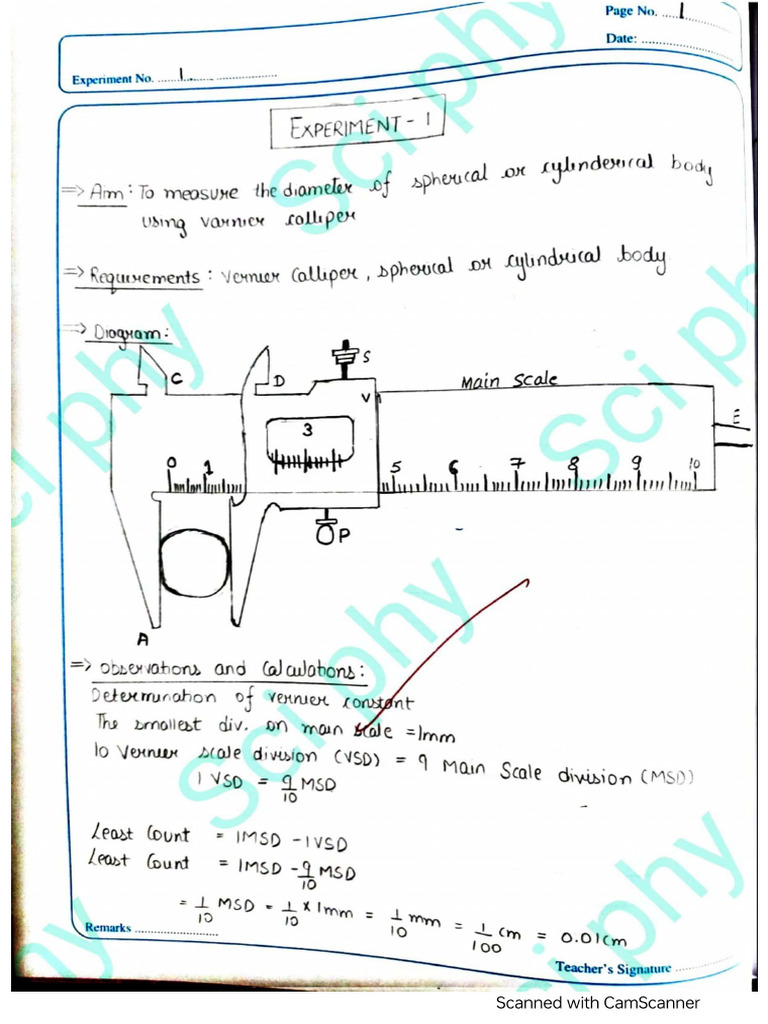 Page No. 1
Date:
Experiment No. 1
EXPERIMENT - 1
=> Aim : To measure the diameter of spherical or cylinderical body
using varnier calliper
=> Requirements : Vernier Calliper, spherical or cylindrical body
=> Diagram :
C D S
V Main Scale E
3
0 1 5 6 7 8 9 10
P
A
=> Observations and Calculations :
Determination of vernier constant
The smallest div. on main scale = 1mm
10 Vernier scale division (VSD) = 9 Main Scale division (MSD)
1 VSD = 9/10 MSD
Least Count = 1MSD - 1VSD
Least Count = 1MSD - 9/10 MSD
= 1/10 MSD = 1/10 × 1mm = 1/10 mm = 1/100 cm = 0.01cm
Remarks
Teacher's Signature
Sci phy
Sci phy
Sci phy
Sci phy
Sci phy
Scanned with CamScanner